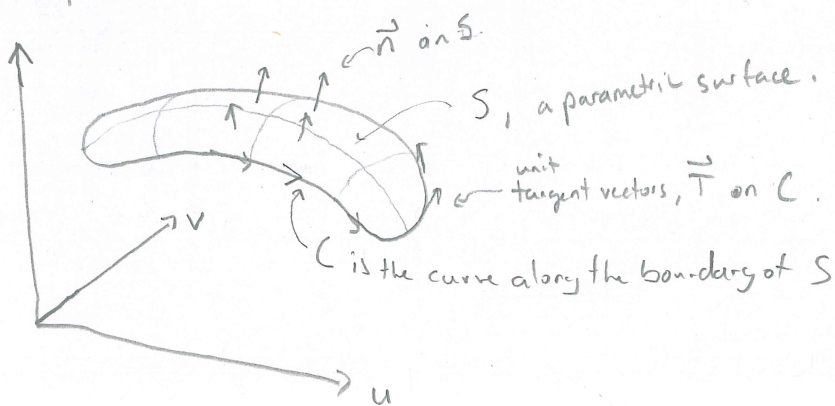 n⃗ on S.
S, a parametric surface.
unit
tangent vectors, T⃗ on C.
V
C is the curve along the boundary of S
u